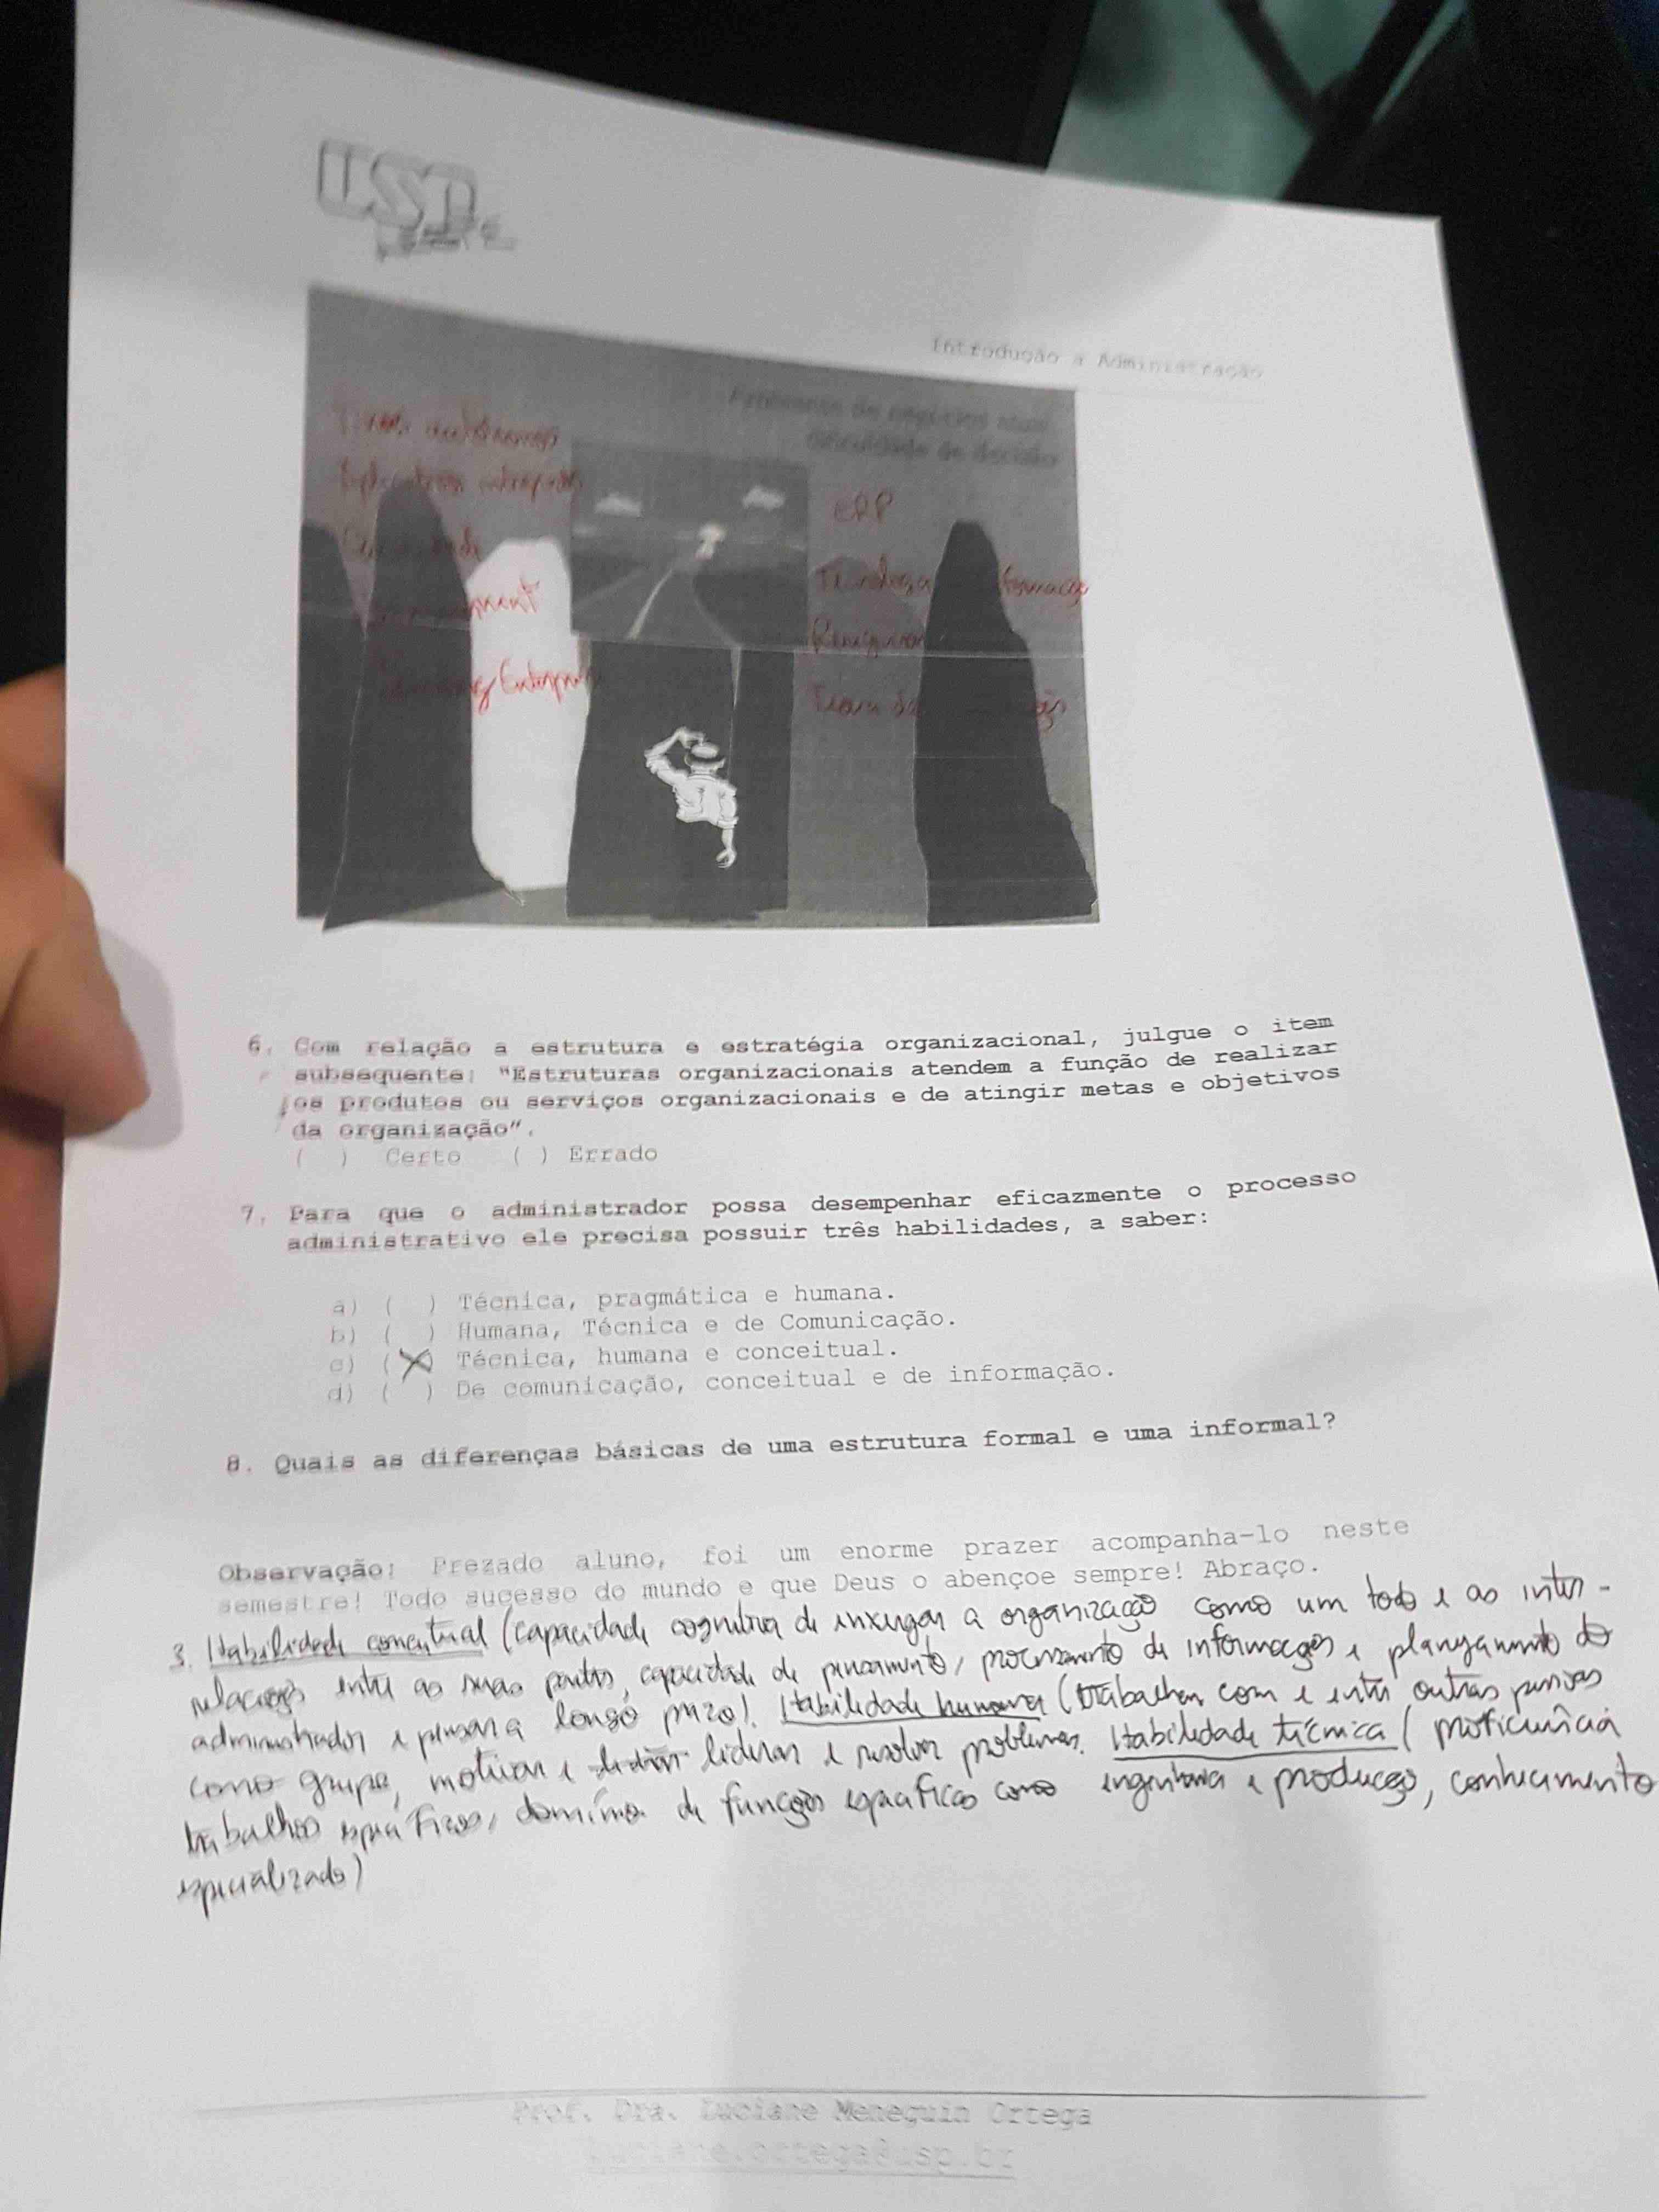 USP
Introdução a Administração
dificuldade de decisão
ERP
6. Com relação a estrutura e estratégia organizacional, julgue o item
subsequente: "Estruturas organizacionais atendem a função de realizar
os produtos ou serviços organizacionais e de atingir metas e objetivos
da organização".
( ) Certo ( ) Errado
7. Para que o administrador possa desempenhar eficazmente o processo
administrativo ele precisa possuir três habilidades, a saber:
a) ( ) Técnica, pragmática e humana.
b) ( ) Humana, Técnica e de Comunicação.
c) (X) Técnica, humana e conceitual.
d) ( ) De comunicação, conceitual e de informação.
8. Quais as diferenças básicas de uma estrutura formal e uma informal?
Observação: Prezado aluno, foi um enorme prazer acompanha-lo neste
semestre! Todo sucesso do mundo e que Deus o abençoe sempre! Abraço.
3. Habilidade conceitual (capacidade cognitiva de enxergar a organização como um todo e as inter-
relações entre as suas partes, capacidade de pensamento, processamento de informações e planejamento do
administrador e pensar a longo prazo). Habilidade humana (trabalhar com e entre outras pessoas
como grupo, motivar e liderar e resolver problemas. Habilidade técnica (proficiência
trabalhos específicos, domínio de funções específicas como engenharia e produção, conhecimento
especializado)
Prof. Dra. Luciane Meneguin Ortega
luciane.ortega@usp.br